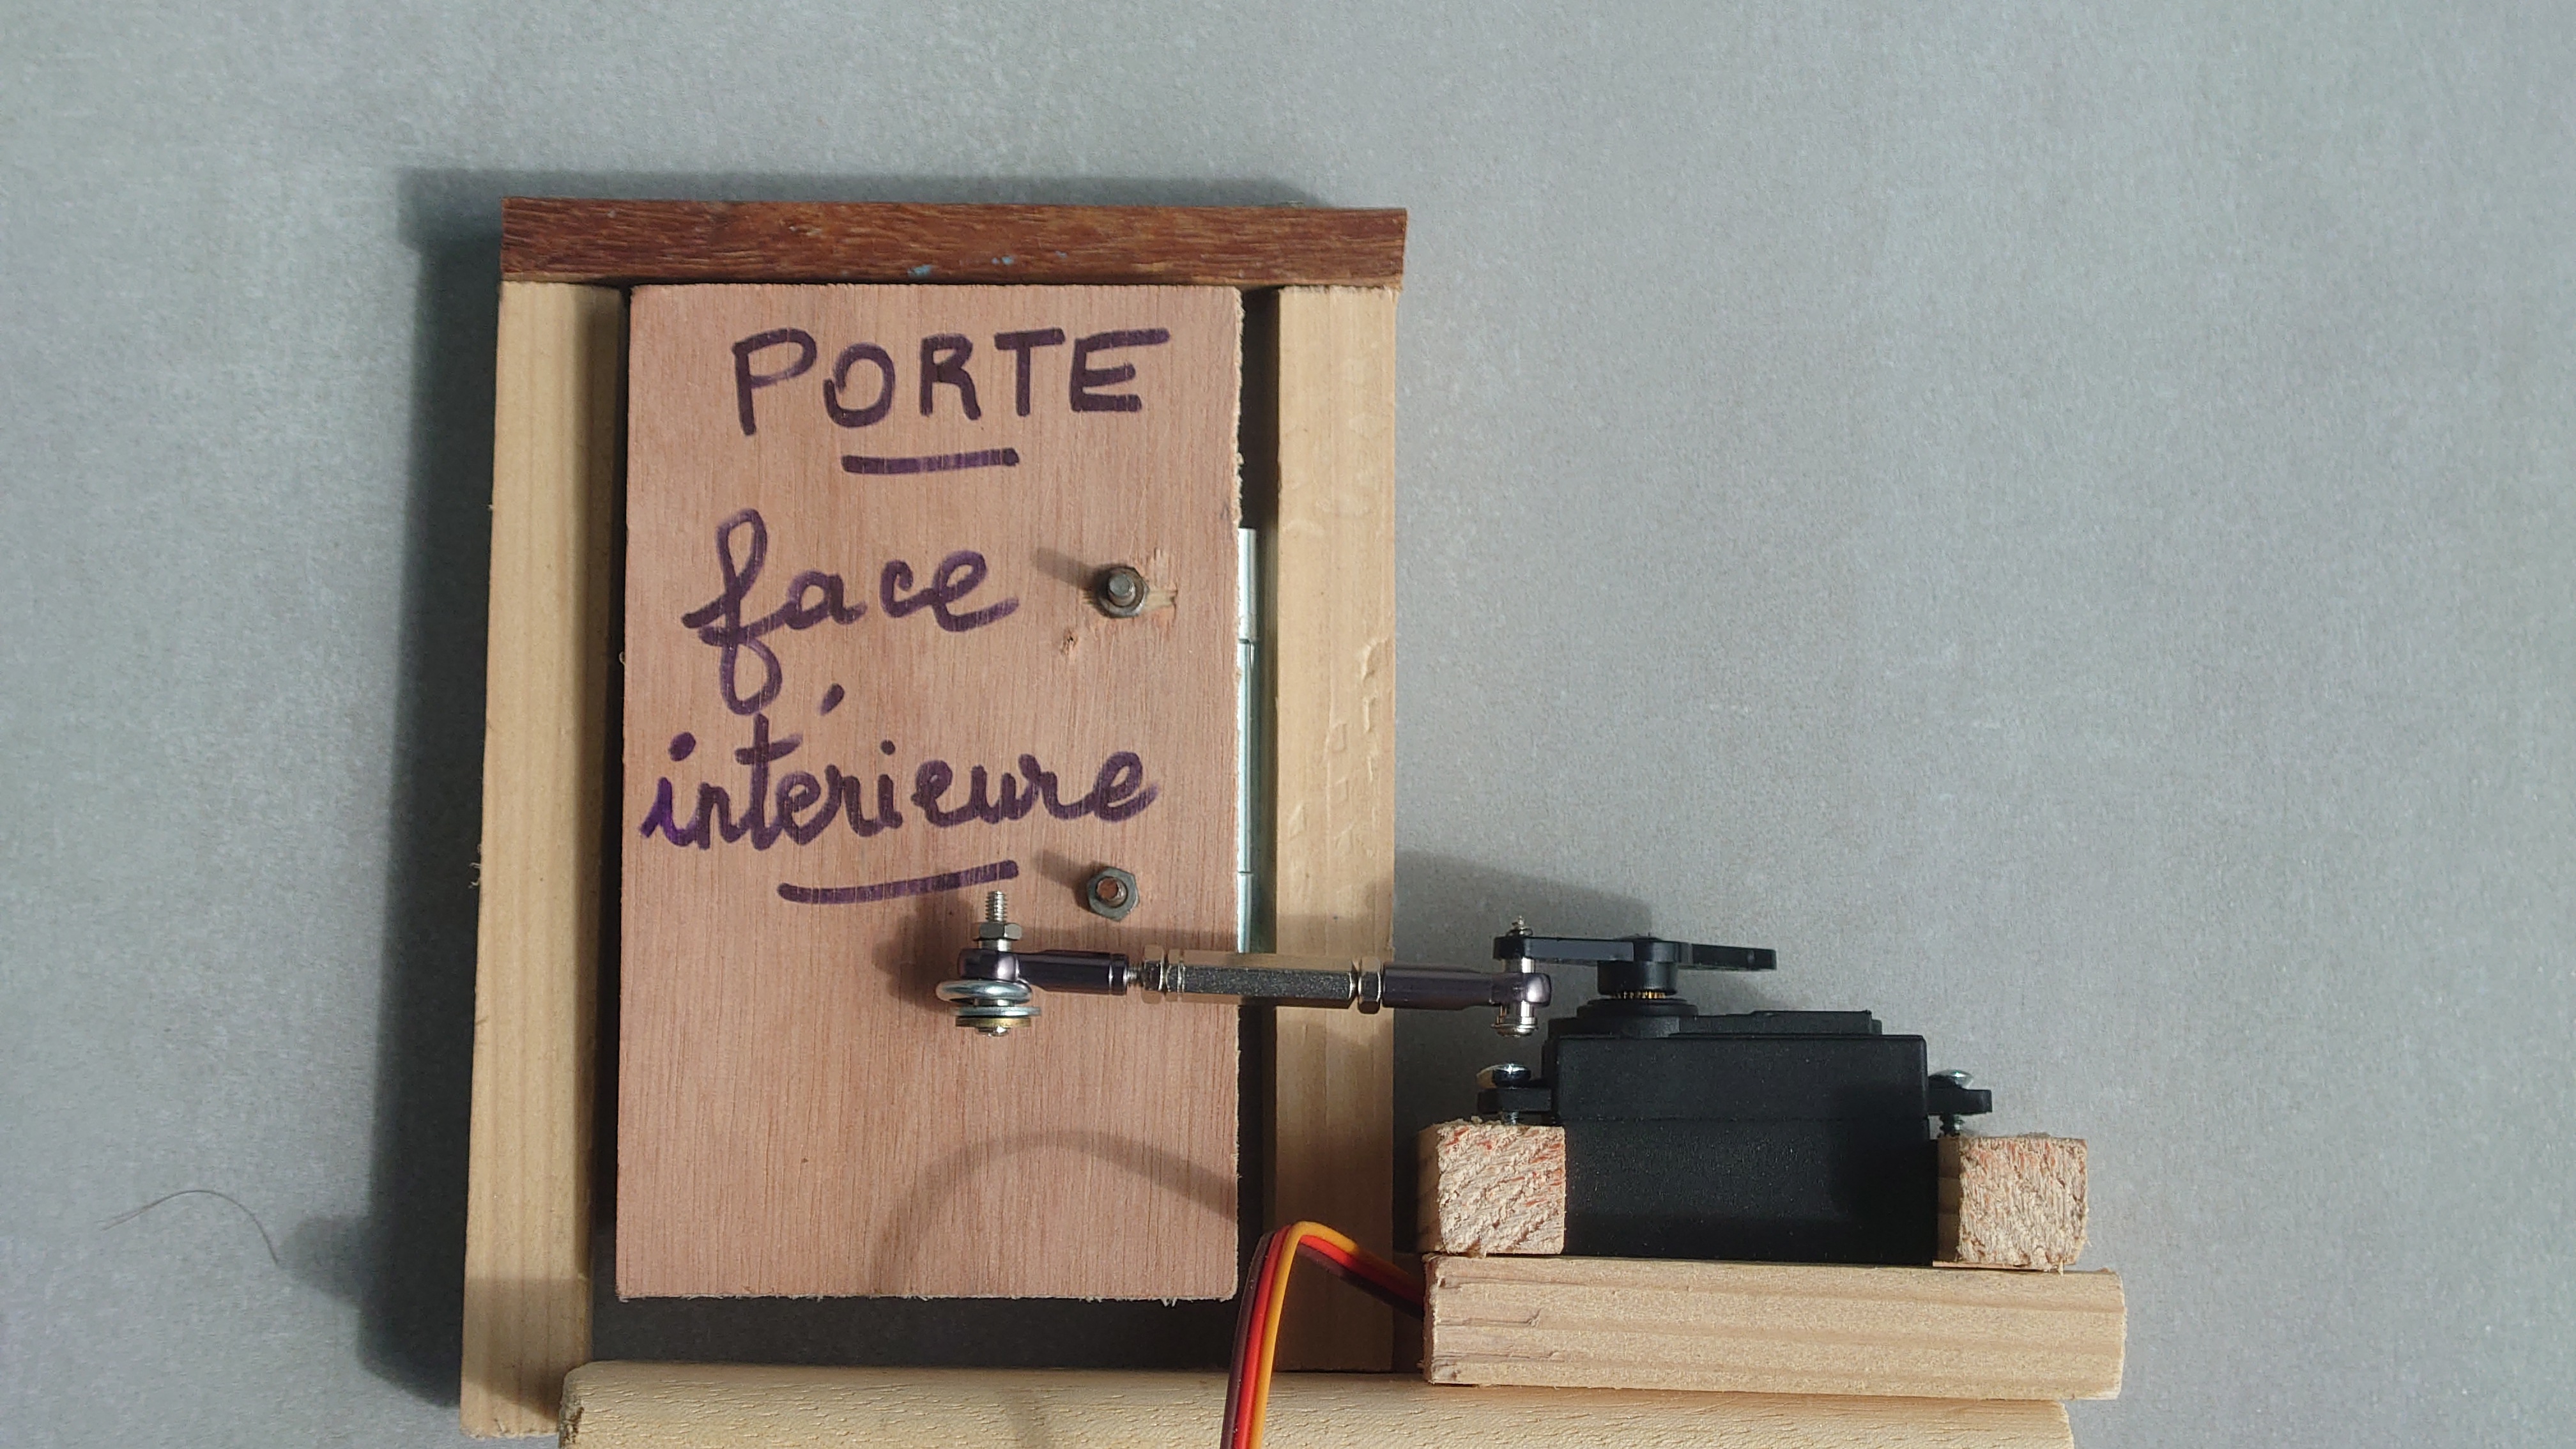 PORTE
face
intérieure